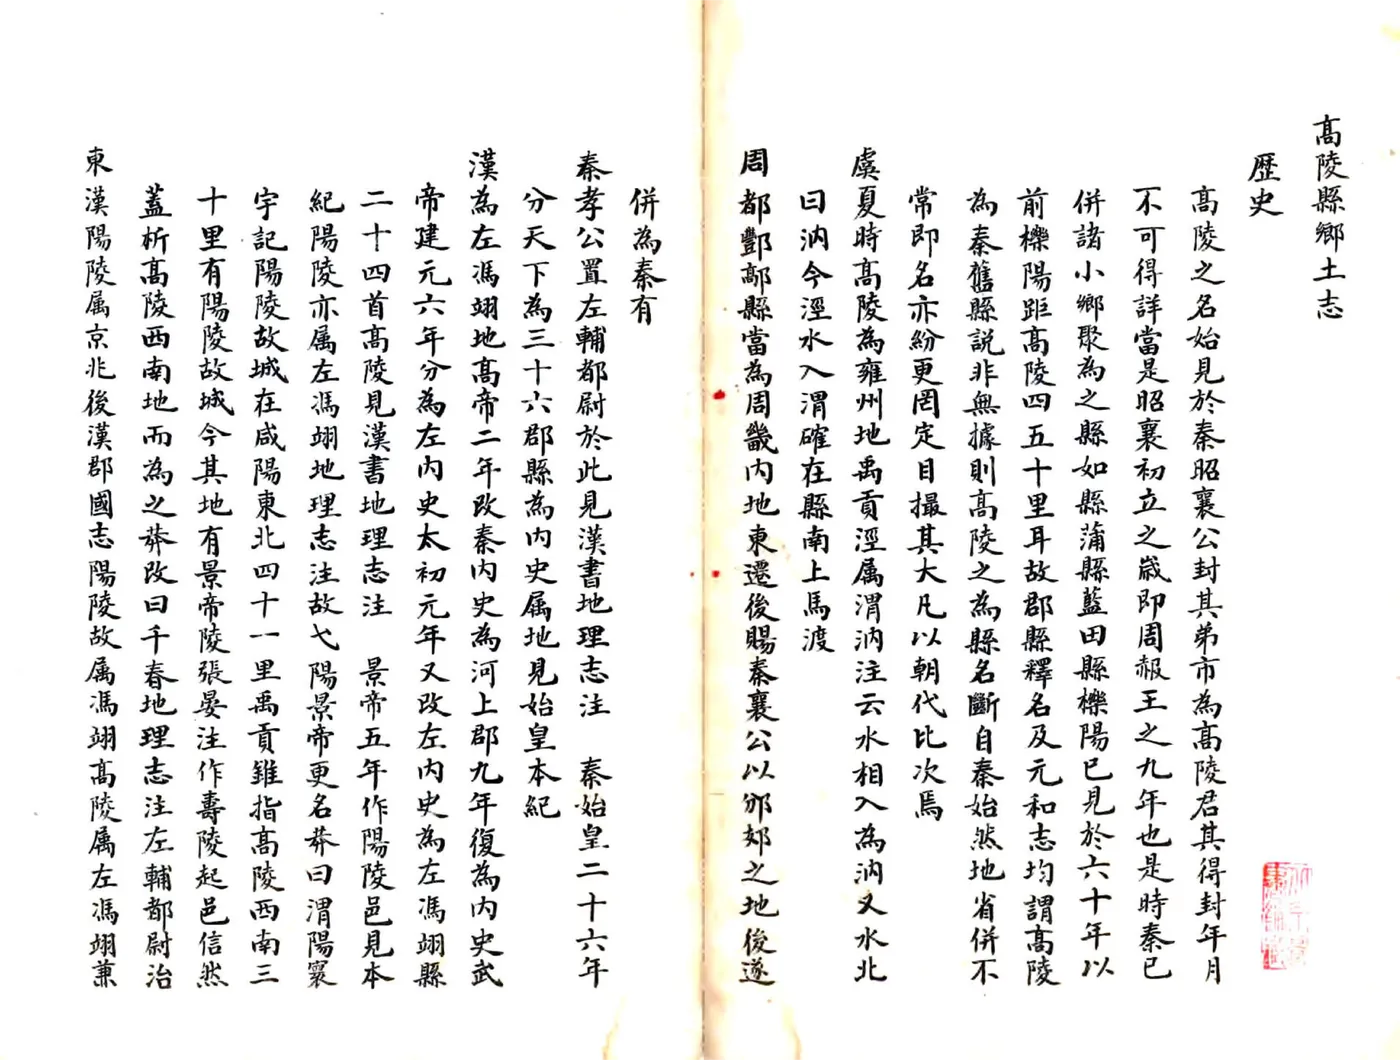 高陵縣鄉土志
歷史
高陵之名始見於秦昭襄公封其弟市為高陵君其得封年月
不可得詳當是昭襄初立之歲即周赧王之九年也是時秦已
併諸小鄉聚為之縣如縣蒲縣藍田縣櫟陽已見於六十年以
前櫟陽距高陵四五十里耳故郡縣釋名及元和志均謂高陵
為秦舊縣說非無據則高陵之為縣名斷自秦始然地省併不
常即名亦紛更罔定目撮其大凡以朝代比次焉
虞夏時高陵為雍州地禹貢涇属渭汭注云水相入為汭又水北
曰汭今涇水入渭確在縣南上馬渡
周都酆鄗縣當為周畿內地東遷後賜秦襄公以邠郊之地後遂
併為秦有
秦孝公置左輔都尉於此見漢書地理志注　秦始皇二十六年
分天下為三十六郡縣為內史属地見始皇本紀
漢為左馮翊地高帝二年改秦內史為河上郡九年復為內史武
帝建元六年分為左內史太初元年又改左內史為左馮翊縣
二十四首高陵見漢書地理志注　景帝五年作陽陵邑見本
紀陽陵亦属左馮翊地理志注故弋陽景帝更名莽曰渭陽寰
宇記陽陵故城在咸陽東北四十一里禹貢錐指高陵西南三
十里有陽陵故城今其地有景帝陵張晏注作壽陵起邑信然
蓋析高陵西南地而為之莽改曰千春地理志注左輔都尉治
東漢陽陵属京兆後漢郡國志陽陵故属馮翊高陵属左馮翊兼